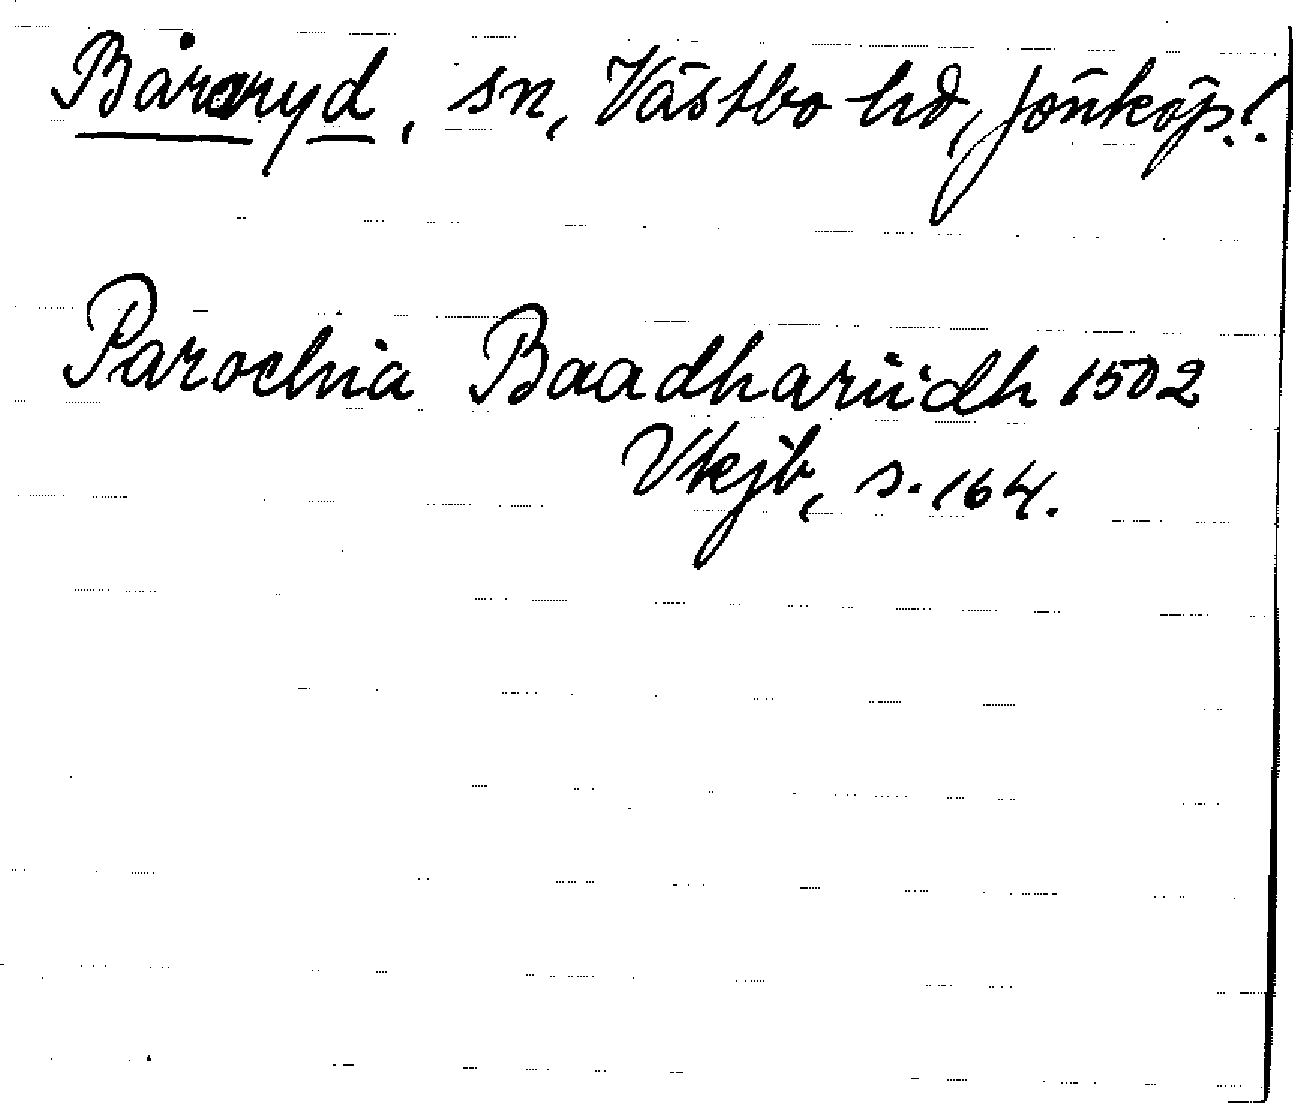 Båraryd, sn, Västbo hd, Jönköp. l.
Parochia Baadharüdh 1502
Vkjb, s. 164.